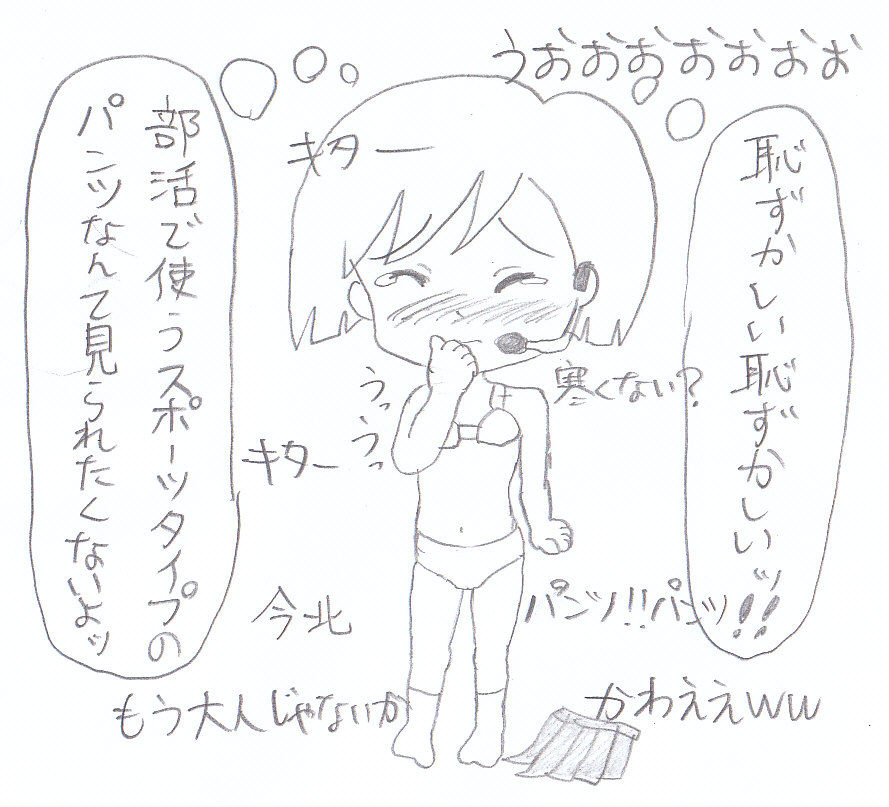 うおおおおおおお
恥ずかしい恥ずかしいッ!!
キター
部活で使うスポーツタイプの
パンツなんて見られたくないよッ
寒くない?
うっうっ
キター
今北
パンツ!!パンツ!!
もう大人じゃないか
かわええww